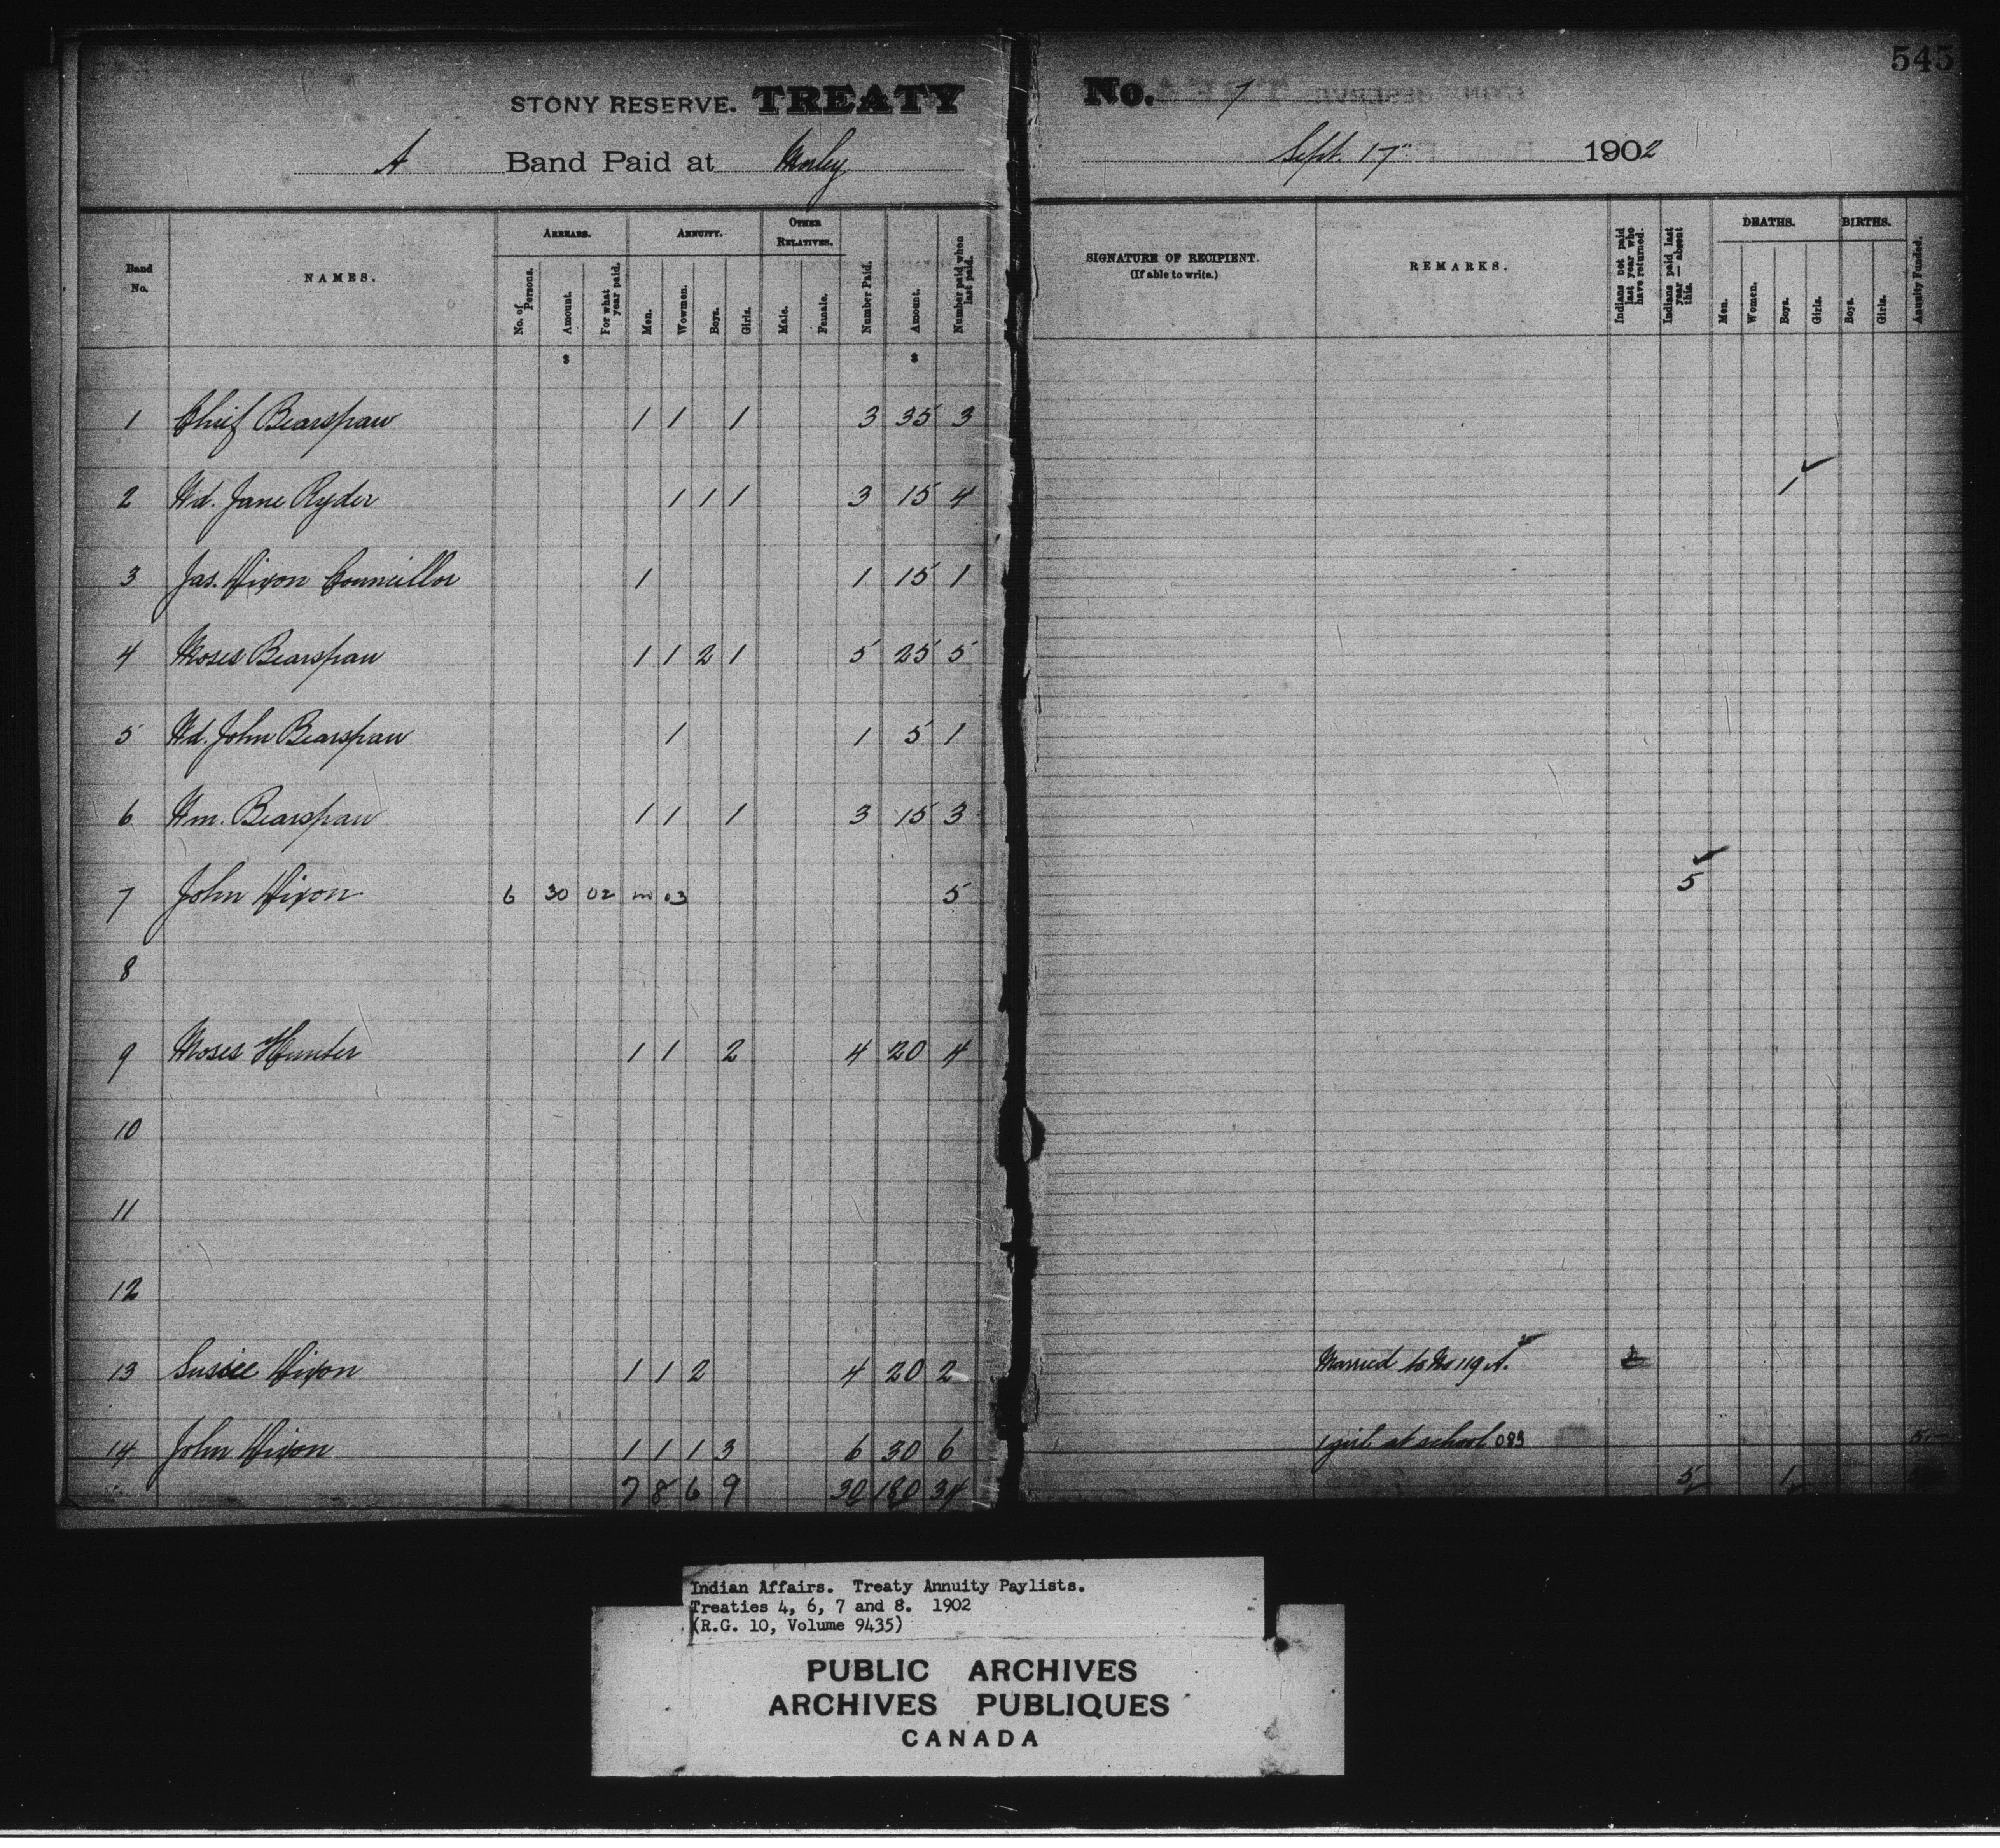 545
STONY RESERVE. TREATY No. 7
A Band Paid at Morley Sept. 17" 1902
Band No. NAMES. ARREARS. ANNUITY. OTHER RELATIVES. Number Paid. Amount. Number paid when last paid. SIGNATURE OF RECIPIENT. (If able to write.) REMARKS. Indians not paid last year who have returned. Indians paid last year — absent this. DEATHS. BIRTHS. Annuity Funded.
No. of Persons. Amount. For what year paid. Men. Women. Boys. Girls. Male. Female. Men. Women. Boys. Girls. Boys. Girls.
$ $
1 Chief Bearspaw 1 1 1 3 35 3
2 Wd. Jane Ryder 1 1 1 3 15 4 1
3 Jas. Dixon Councillor 1 1 15 1
4 Moses Bearspaw 1 1 2 1 5 25 5
5 Wd. John Bearspaw 1 1 5 1
6 Wm. Bearspaw 1 1 1 3 15 3
7 John Dixon 6 30 02 in 03 5 5
8
9 Moses Hunter 1 1 2 4 20 4
10
11
12
13 Susie Dixon 1 1 2 4 20 2 Married to No 119 A.
14 John Dixon 1 1 1 3 6 30 6 1 girl at school
7 8 6 9 30 180 34 5 1
Indian Affairs. Treaty Annuity Paylists.
Treaties 4, 6, 7 and 8. 1902
(R.G. 10, Volume 9435)
PUBLIC ARCHIVES
ARCHIVES PUBLIQUES
CANADA